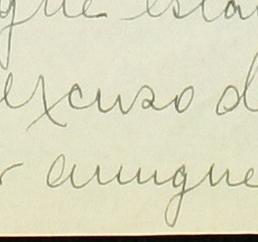 que esta
excuso d
r aunque